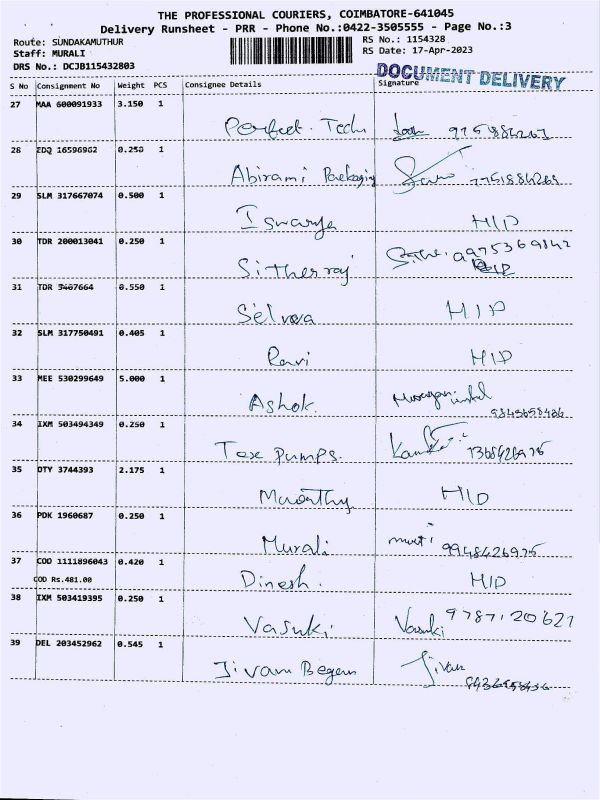 THE PROFESSIONAL COURIERS, COIMBATORE-641045
Delivery Runsheet - PRR - Phone No.:0422-3505555 - Page No.:3
Route: SUNDAKAMUTHUR
Staff: MURALI
DRS No.: DCJB115432803
RS No.: 1154328
RS Date: 17-Apr-2023
DOCUMENT DELIVERY
S No Consignment No Weight PCS Consignee Details Signature
27 MAA 600091933 3.150 1 Perfect Tech
28 EDQ 16596982 0.250 1 Abirami Packaging
29 SLM 317667074 0.500 1 Iswarya H/D
30 TDR 200013041 0.250 1 Sitherraj 9975369842
H/D
31 TDR 5407664 0.550 1 Selvora H/D
32 SLM 317750491 0.405 1 Ravi H/D
33 MEE 530299649 5.000 1 Ashok. Murugan
9843658426
34 IXM 503494349 0.250 1 Texe Pumps. 1368426975
35 OTY 3744393 2.175 1 Muorthy H/D
36 PDK 1960687 0.250 1 Murali 9948426975
37 COD 1111896043 0.420 1 Dinesh. H/D
COD Rs.481.00
38 IXM 503419395 0.250 1 Vasuki Vasuki 9787120621
39 DEL 203452962 0.545 1 Jivam Begem Jivan